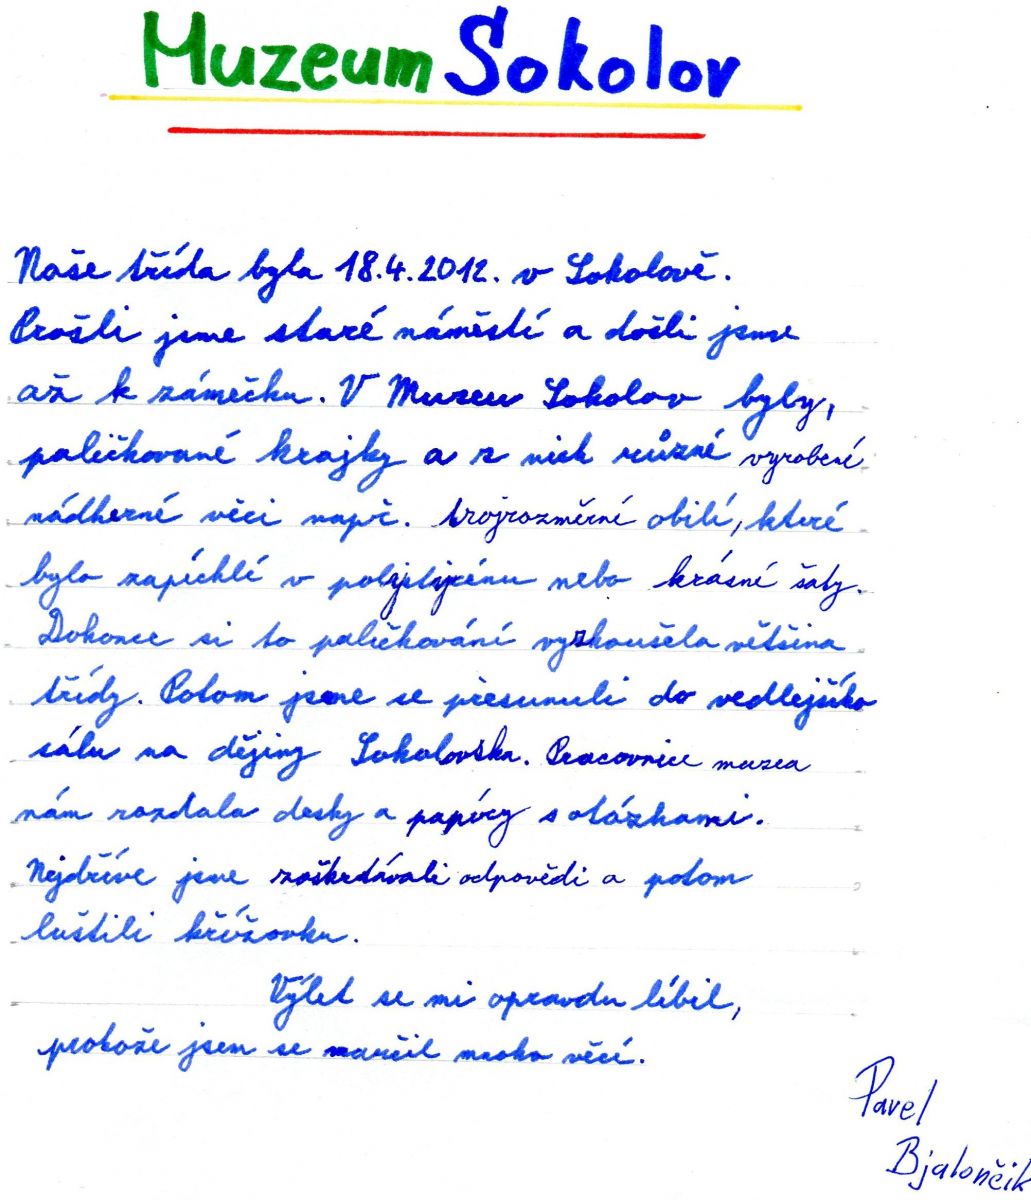 Muzeum Sokolov
Naše třída byla 18.4.2012. v Sokolově.
Prošli jsme staré náměstí a došli jsme
až k zámečku. V Muzeu Sokolov byly,
paličkované krajky a z nich různé vyrobení
nádherné věci např. trojrozměrní obilí, které
bylo zapíchlé v polystyrénu nebo krásné šaty.
Dokonce si to paličkování vyzkoušela většina
třídy. Potom jsme se přesunuli do vedlejšího
sálu na dějiny Sokolovska. Pracovnice muzea
nám rozdala desky a papíry s otázkami.
Nejdříve jsme zaškrtávali odpovědi a potom
luštili křížovku.
Výlet se mi opravdu líbil,
protože jsem se naučil mnoho věcí.
Pavel
Bjalončik